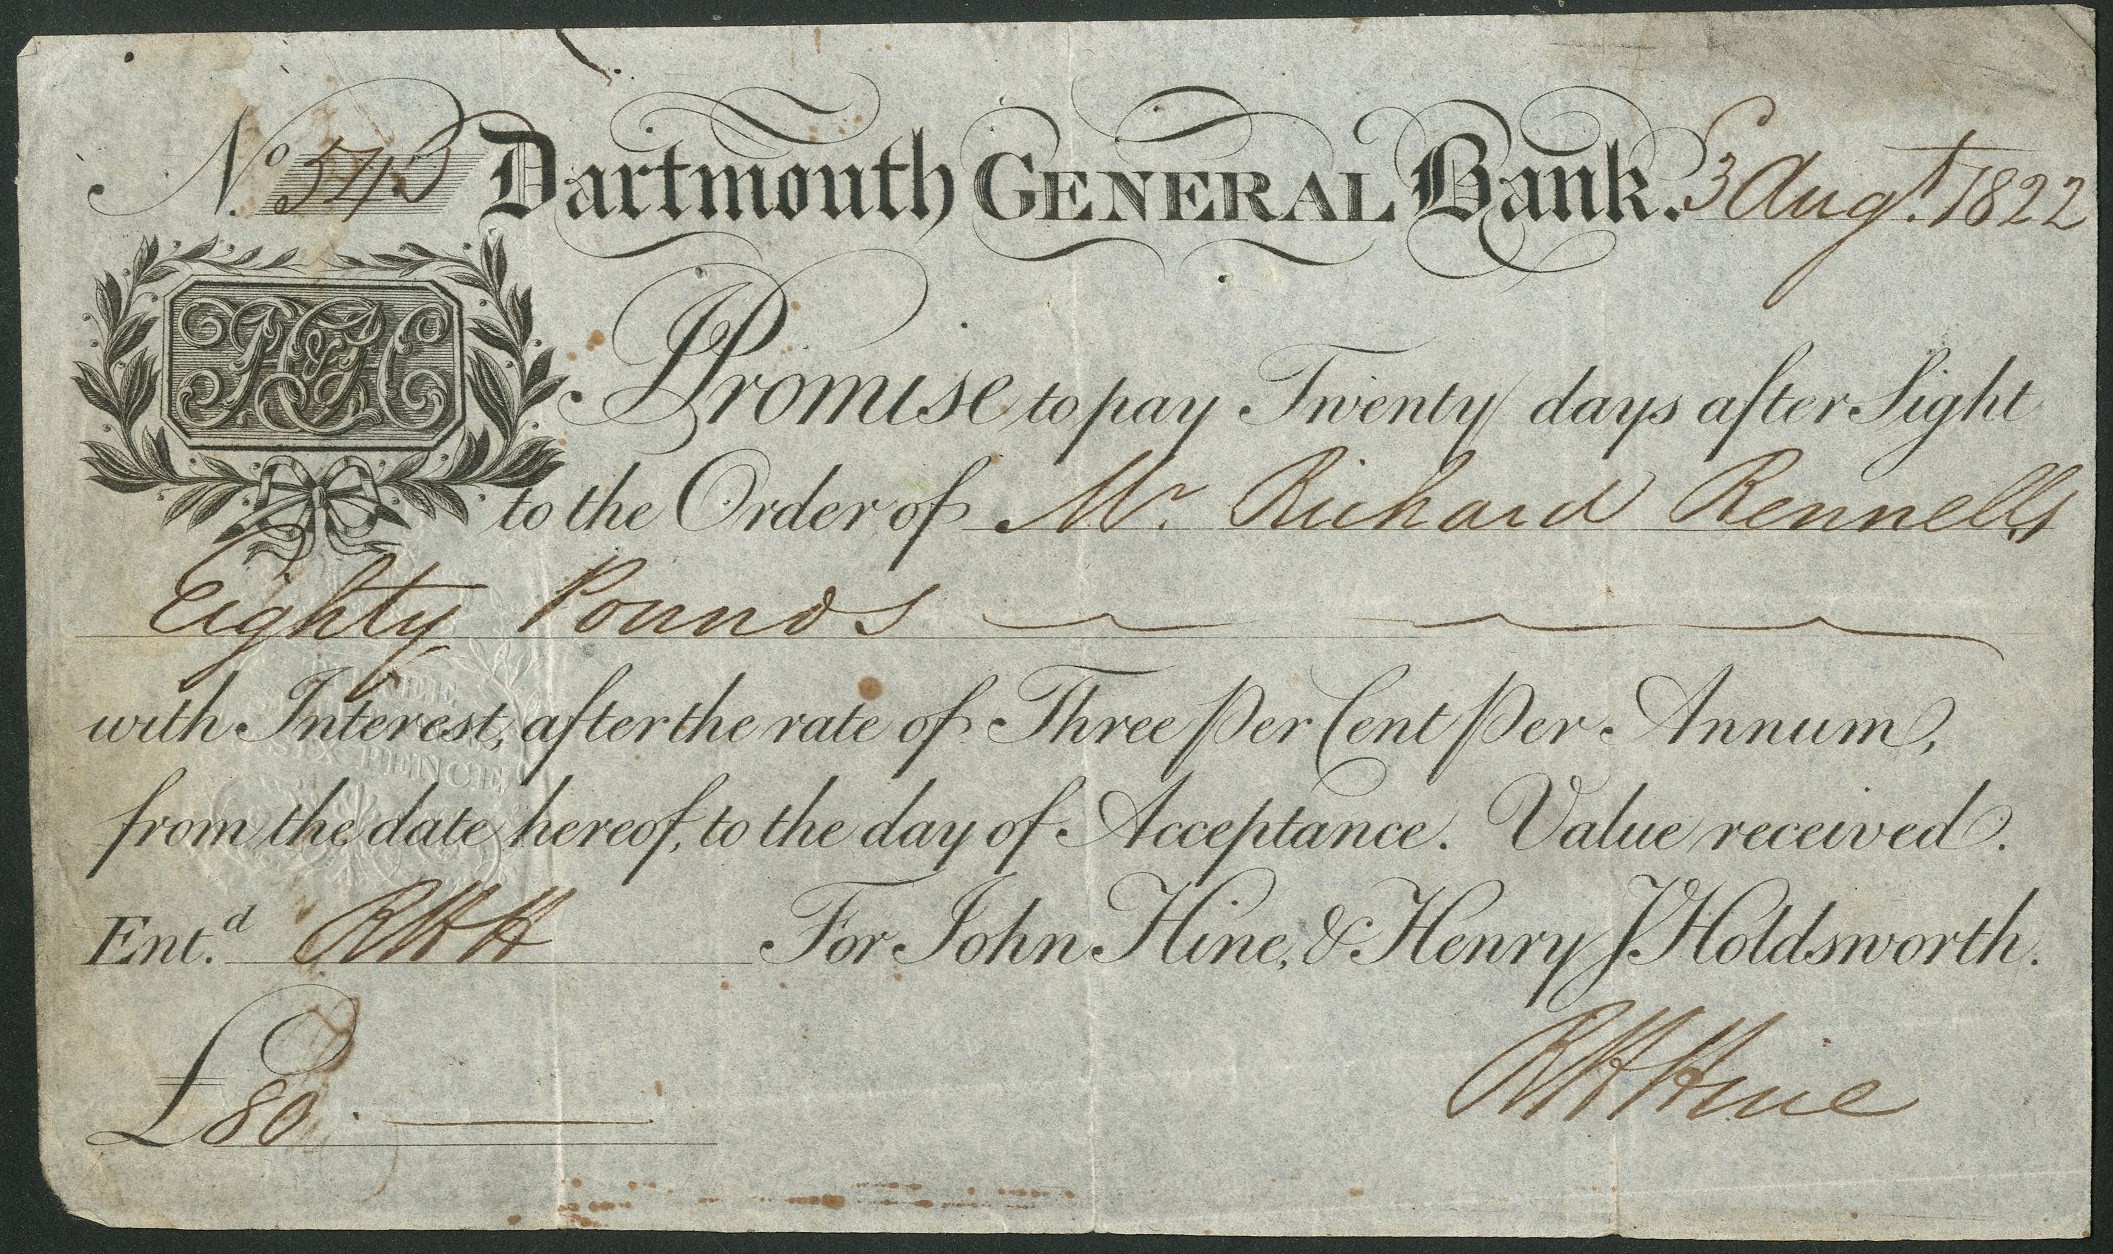 No. 543 Dartmouth GENERAL Bank. 3 Augt. 1822
H&H
I Promise to pay Twenty days after Sight
to the Order of Mr. Richard Rennells
Eighty Pounds
with Interest, after the rate of Three Per Cent Per Annum,
SIX PENCE
from the date hereof, to the day of Acceptance. Value received.
Ent.d RHH For John Hine, & Henry J Holdsworth.
RH Hine
£80.